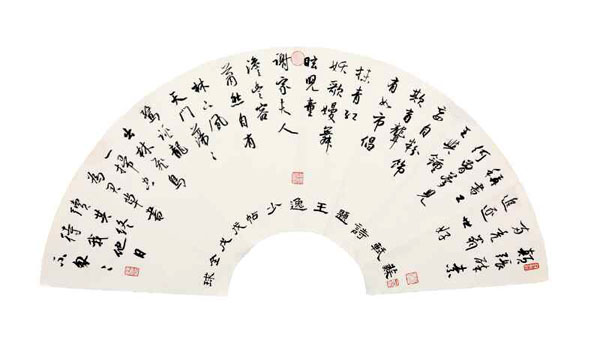 顛張醉素
兩禿翁
追逐世好
稱書工
何曾夢見
王與鍾
妄自粉飾
欺盲聾
有如市倡
抹青紅
妖歌嫚舞
眩兒童
謝家夫人
澹丰容
蕭然自有
林下風
天門蕩〻
驚跳龍
出林飛鳥
一掃空
為君草書
續其終
待我他日
不匆〻
蘇軾詩題王逸少帖戊戌全球